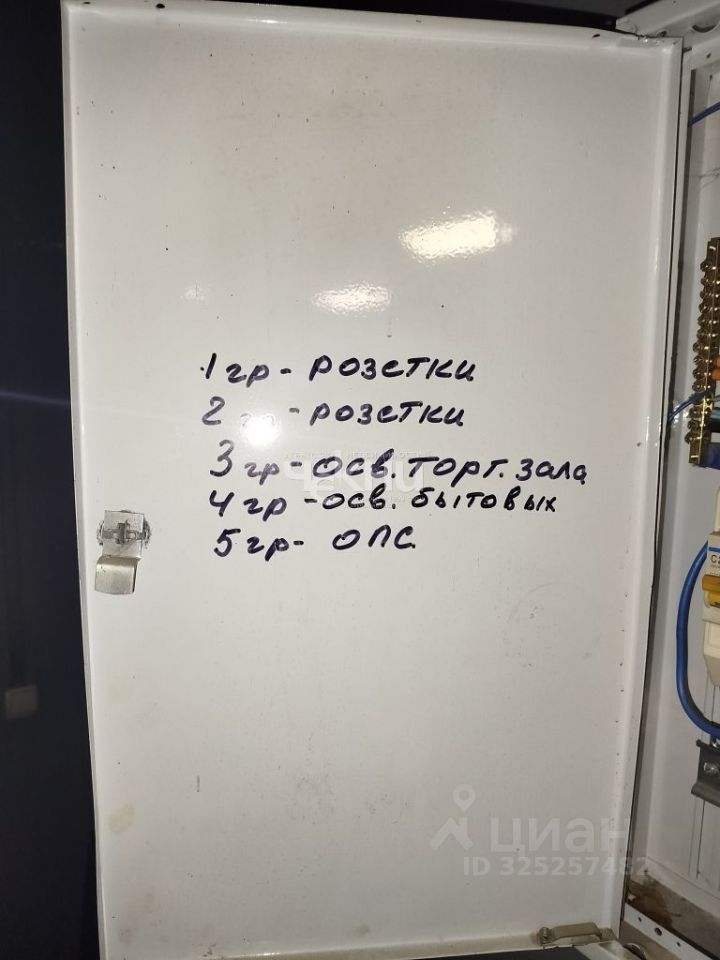 1 гр - розетки
2 гр - розетки
3 гр - осв. торг. зала
4 гр - осв. бытовых
5 гр - ОПС
циан
ID 325257482